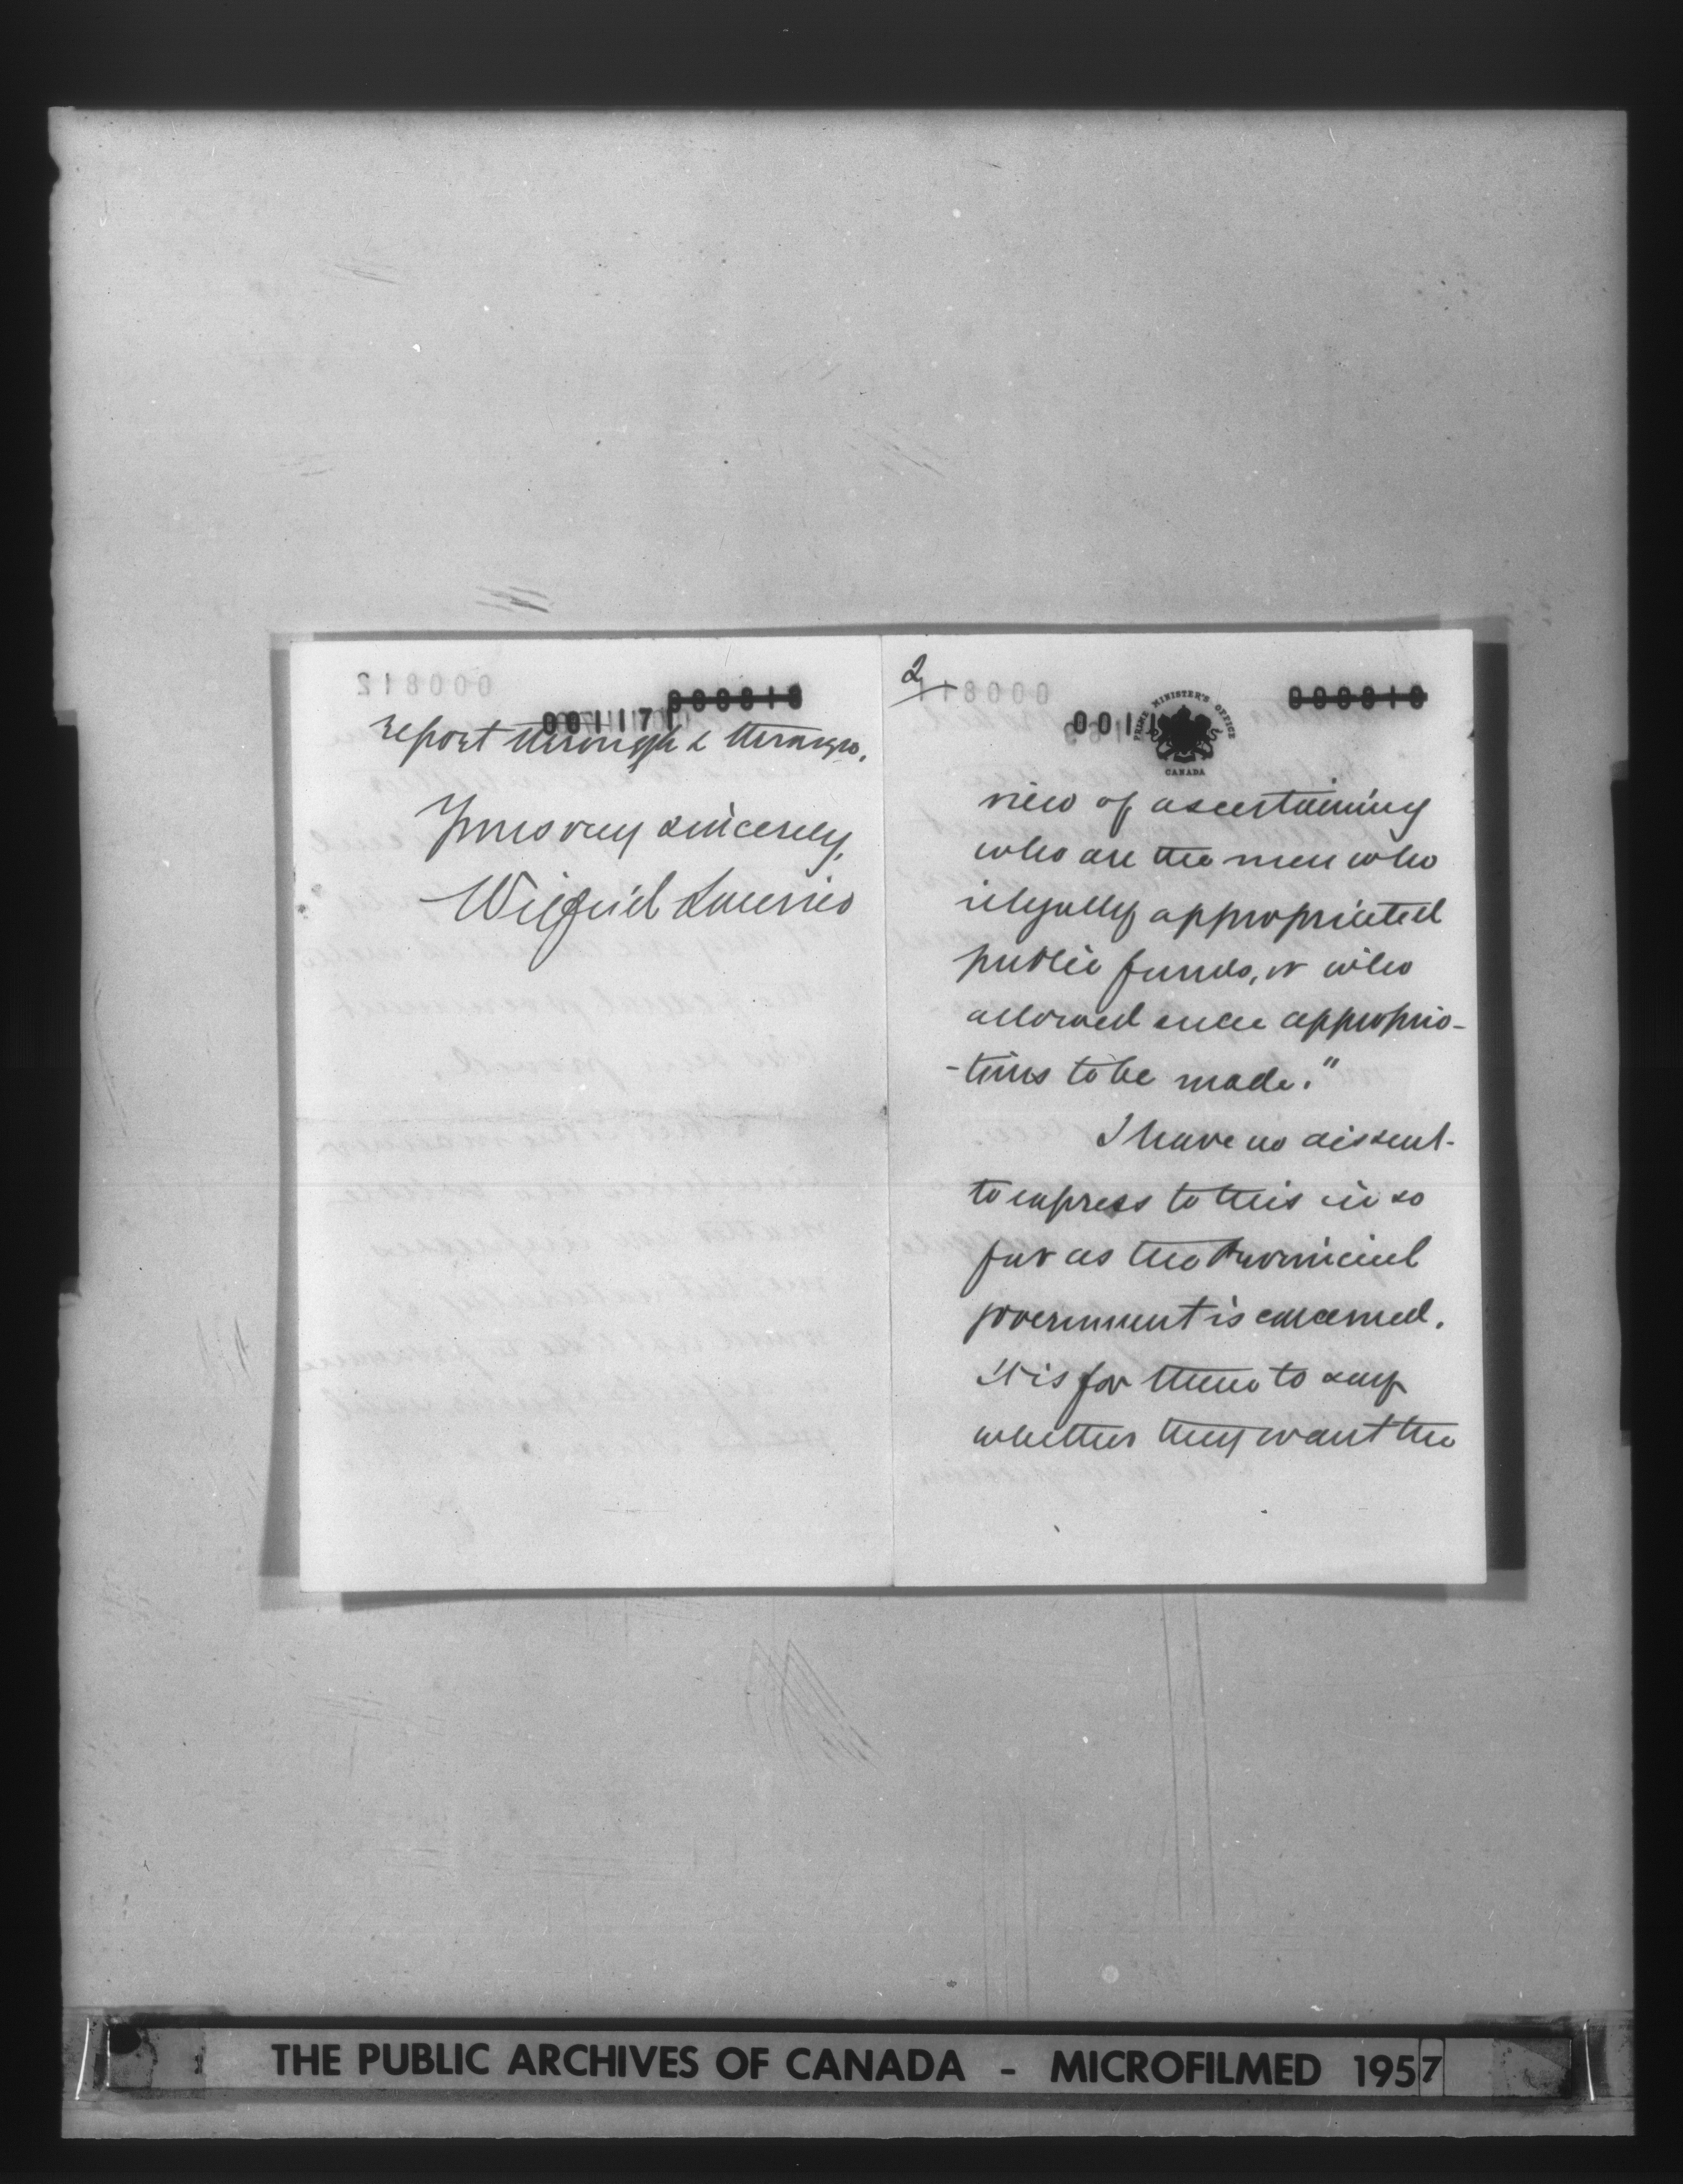 000813
001171
report through & through.
Yours very sincerely,
Wilfrid Laurier
2
000810
0011
PRIME MINISTER'S OFFICE
CANADA
view of ascertaining
who are the men who
illegally appropriated
public funds, or who
allowed such appropria-
-tions to be made."
I have no dissent
to express to this in so
far as the Provincial
government is concerned.
It is for them to say
whether they want the
THE PUBLIC ARCHIVES OF CANADA - MICROFILMED 1957